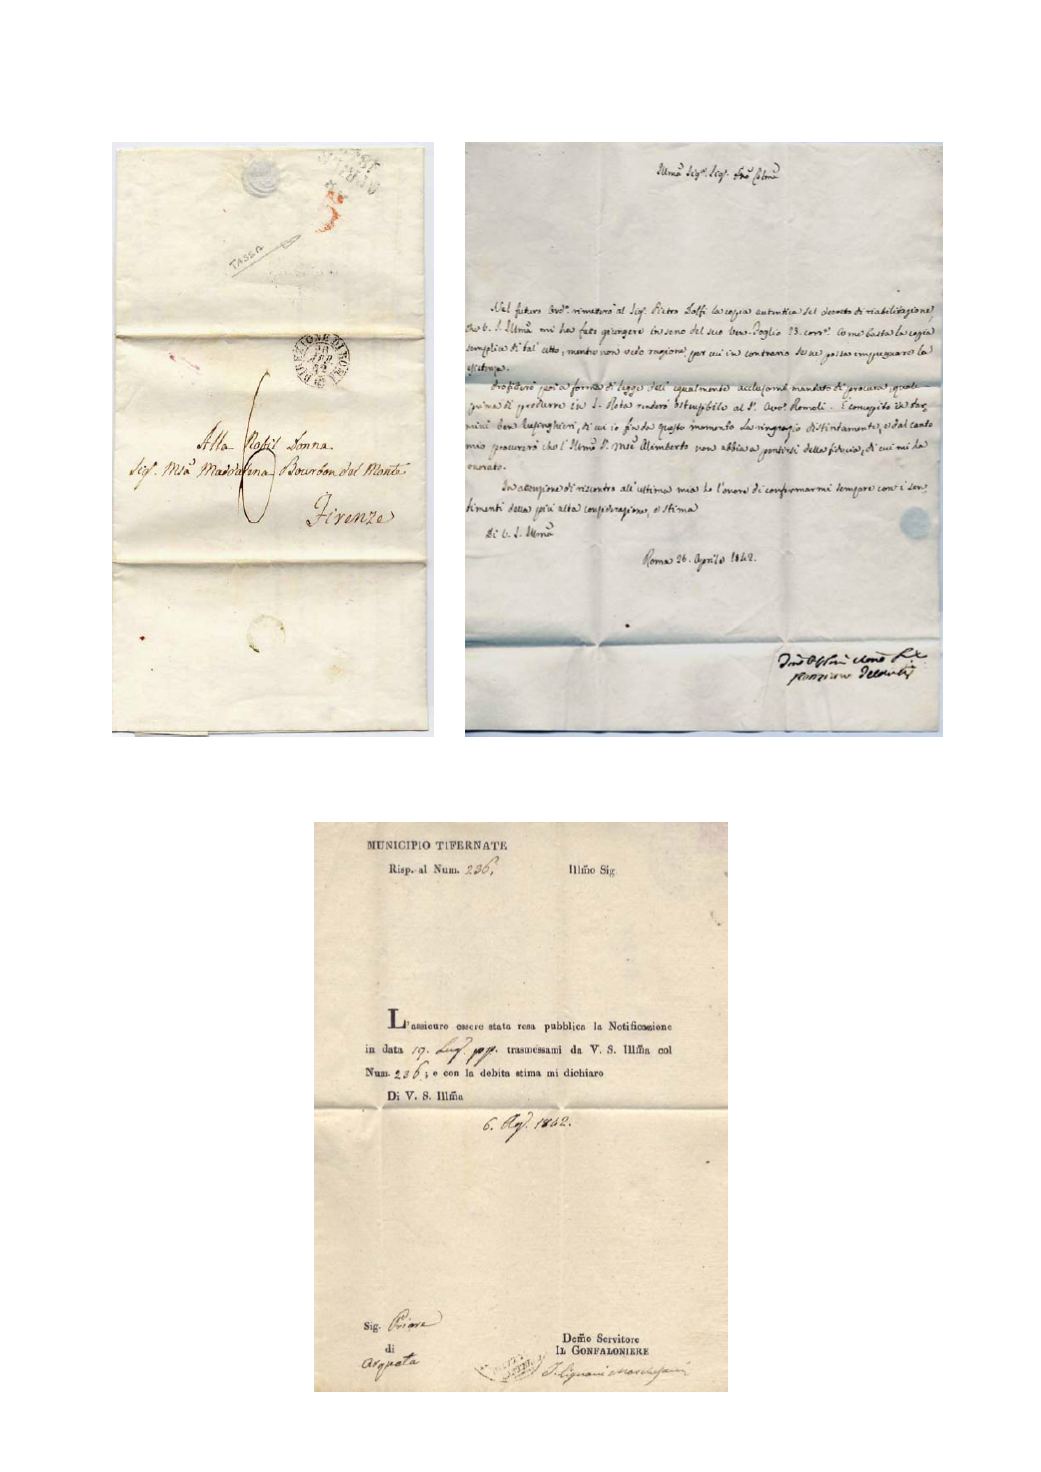 TASSA
DIREZIONE DI ROMA
6
Alla Nobil Donna
Sig.ª Msã Maddalena Bourbon del Monte
Firenze
Illmõ Sig.r Sig.
Nel futuro Ord.º rimetterò al Sig. Pietro la copia autentica del decreto di riabilitazione,
che V. S. Illmã mi ha fatto giungere in seno del suo ven. foglio 23. corr.e Come basta la copia
semplice di tal atto, mentre non vedo ragione per cui in contrario se ne possa impugnare la
Profitterò poi a forma di legge dell' egualmente acclusomi mandato di procura, quale
prima di produrre in S. Rota renderò ostensibile al S. Avv.º Romoli. È concepito in ter,
mini ben lusinghieri, di cui io fin da questo momento La ringrazio distintamente, e dal canto
mio procurerò che l'Illmo S. Alimberto non abbia a pentirsi della fiducia, di cui mi ha
onorato.
In attenzione di riscontro all' ultima mia ho l'onore di confermarmi sempre con i sen,
timenti della più alta considerazione, e stima
Di V. S. Illmã
Roma 26. Aprile 1842.
MUNICIPIO TIFERNATE
Risp. al Num. 236, Illm̃o Sig
L'assicuro essere stata resa pubblica la Notificazione
in data 19. Lug. pp. trasmessami da V. S. Illm̃a col
Num. 236; e con la debita stima mi dichiaro
Di V. S. Illm̃a
6. Ag. 1842.
Sig. Priore
di
Arquata
Dem̃o Servitore
IL GONFALONIERE